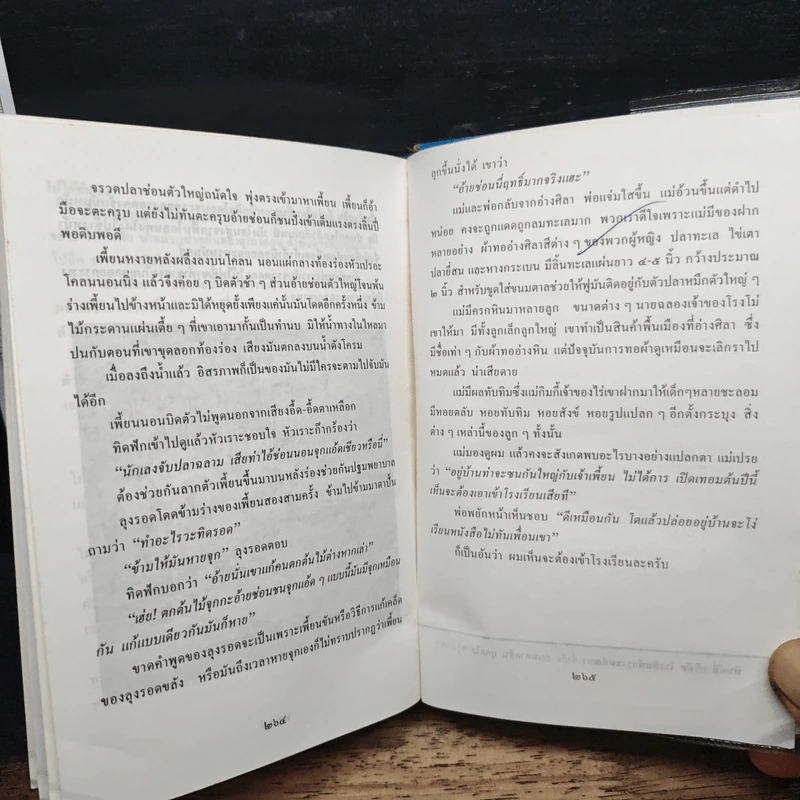 จรวดปลาช่อนตัวใหญ่ถนัดใจ พุ่งตรงเข้ามาหาเพี้ยน เพี้ยนก็อ้า
มือจะตะครุบ แต่ยังไม่ทันตะครุบอ้ายช่อนก็ชนปังเข้าเต็มแรงตรงลิ้นปี่
พอดิบพอดี
เพี้ยนหงายหลังผลึ่งลงบนโคลน นอนแผ่กลางท้องร่องหัวเปรอะ
โคลนนอนนิ่ง แล้วจึงค่อย ๆ บิดตัวช้า ๆ ส่วนอ้ายช่อนตัวใหญ่โจนพ้น
ร่างเพี้ยนไปข้างหน้าและมิได้หยุดยั้งเพียงแค่นั้นมันโดดอีกครั้งหนึ่ง ข้าม
ไม้กระดานแผ่นเตี้ย ๆ ที่เขาเอามากั้นเป็นทำนบ มิให้น้ำทางในไหลมา
ปนกับตอนที่เขาขุดลอกท้องร่อง เสียงมันตกลงบนน้ำดังโครม
เมื่อลงถึงน้ำแล้ว อิสรภาพก็เป็นของมันไม่มีใครจะตามไปจับมัน
ได้อีก
เพี้ยนนอนบิดตัวไม่พูดนอกจากเสียงอึ๊ด-อึ๊ดตาเหลือก
ทิดฟักเข้าไปดูแล้วหัวเราะชอบใจ หัวเราะก๊ากร้องว่า
“นักเลงจับปลาฉลาม เสียท่าไอ้ช่อนนอนจุกแอ้ดเชียวหรือนี่”
ต้องช่วยกันลากตัวเพี้ยนขึ้นมาบนหลังร่องช่วยกันปฐมพยาบาล
ลุงรอดโดดข้ามร่างของเพี้ยนสองสามครั้ง ข้ามไปข้ามมาตาปั้น
ถามว่า “ทำอะไรวะทิดรอด”
“ข้ามให้มันหายจุก” ลุงรอดตอบ
ทิดฟักบอกว่า “อ้ายนั่นเขาแก้คนตกต้นไม้ต่างหากเล่า”
“เฮ่ย! ตกต้นไม้จุกกะอ้ายช่อนชนจุกแอ้ด ๆ แบบนี้มันมีจุกเหมือน
กัน แก้แบบเดียวกันมันก็หาย”
ขาดคำพูดของลุงรอดจะเป็นเพราะเพี้ยนขันหรือวิธีการแก้เคล็ด
ของลุงรอดขลัง หรือมันถึงเวลาหายจุกเองก็ไม่ทราบปรากฏว่าเพี้ยน
๒๖๔
ลุกขึ้นนั่งได้ เขาว่า
“อ้ายช่อนนี่ฤทธิ์มากจริงแฮะ”
แม่และพ่อกลับจากอ่างศิลา พ่อแจ่มใสขึ้น แม่อ้วนขึ้นแต่ดำไป
หน่อย คงจะถูกแดดถูกลมทะเลมาก พวกเราดีใจเพราะแม่มีของฝาก
หลายอย่าง ผ้าทออ่างศิลาสีต่าง ๆ ของพวกผู้หญิง ปลาทะเล ไข่เตา
ปลายี่สน และหางกระเบน มีลิ้นทะเลแผ่นยาว ๔-๕ นิ้ว กว้างประมาณ
๒ นิ้ว สำหรับขูดใส่ขนมตาลช่วยให้ฟูมันติดอยู่กับตัวปลาหมึกตัวใหญ่ ๆ
แม่มีครกหินมาหลายลูก ขนาดต่าง ๆ นายฉลองเจ้าของโรงโม่
เขาให้มา มีทั้งลูกเล็กลูกใหญ่ เขาทำเป็นสินค้าพื้นเมืองที่อ่างศิลา ซึ่ง
มีชื่อเท่า ๆ กับผ้าทออ่างหิน แต่ปัจจุบันการทอผ้าดูเหมือนจะเลิกราไป
หมดแล้ว น่าเสียดาย
แม่มีผลทับทิมซึ่งแม่กิมกี่เจ้าของไร่เขาฝากมาให้เด็กๆหลายชะลอม
มีหอยตลับ หอยทับทิม หอยสังข์ หอยรูปแปลก ๆ อีกตั้งกระบุง สิ่ง
ต่าง ๆ เหล่านี้ของลูก ๆ ทั้งนั้น
แม่มองดูผม แล้วคงจะสังเกตพบอะไรบางอย่างแปลกตา แม่เปรย
ว่า “อยู่บ้านท่าจะซนกันใหญ่กับเจ้าเพี้ยน ไม่ได้การ เปิดเทอมต้นปีนี้
เห็นจะต้องเอาเข้าโรงเรียนเสียที”
พ่อพยักหน้าเห็นชอบ “ดีเหมือนกัน โตแล้วปล่อยอยู่บ้านจะโง่
เรียนหนังสือไม่ทันเพื่อนเขา”
ก็เป็นอันว่า ผมเห็นจะต้องเข้าโรงเรียนละครับ
๒๖๕